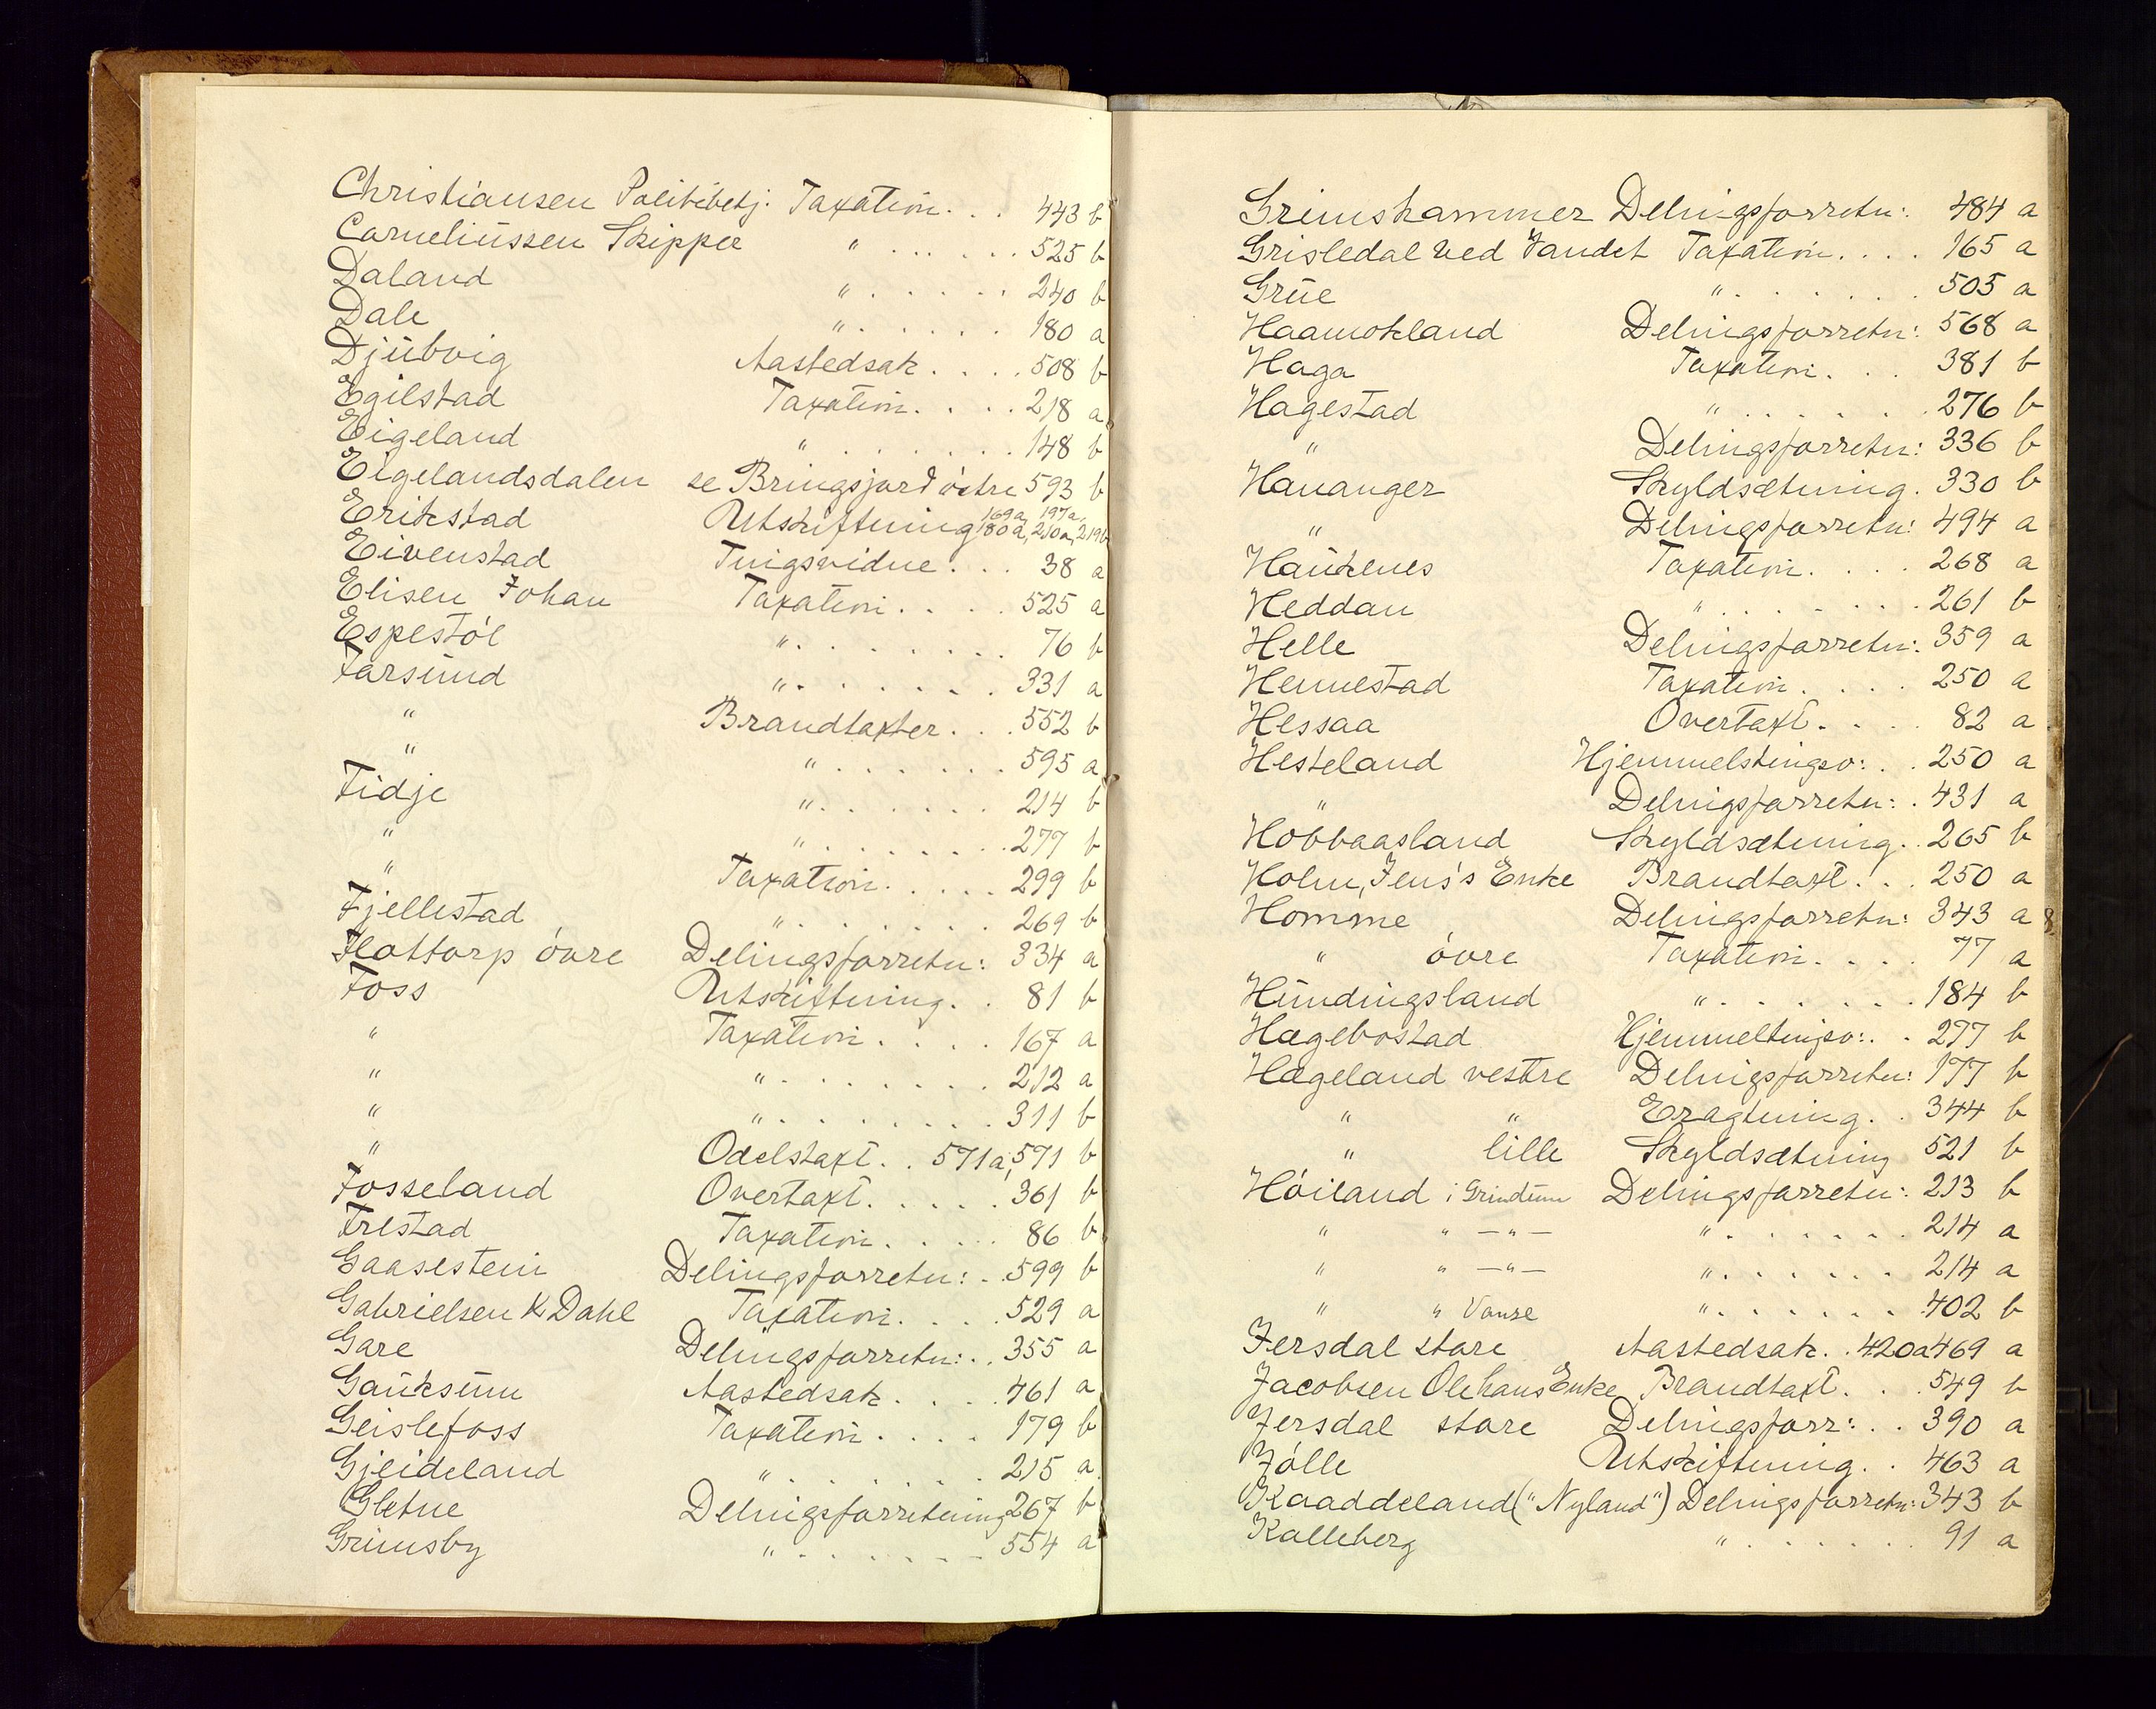 Christiansen Politibetj. Taxation . . . 443 b
Corneliussen Skipper " . . . . . . 525 b
Daland " . . . . . 240 b
Dale " . . . . . 180 a
Djubvig Aastedsak . . . . 508 b
Egilstad Taxation . . . . 218 a
Eigeland " . . . . . . 148 b
Eigelandsdalen se Bringsjord östre 593 b
Erikstad Utskiftning 169a, 197a, 180a, 210a, 219b
Eivenstad Tingsvidne . . . 38 a
Elisen Johan Taxation . . . . 525 a
Espestöl " . . . . . . . 76 b
Farsund " . . . . . . 331 a
" Brandtaxter . . . 552 b
" " . . . . . . 595 a
Fidje " . . . . . . 214 b
" " . . . . . . . 277 b
" Taxation . . . . . 299 b
Fjellestad " . . . . . . 269 b
Flottorp övre Delingsforretn: 334 a
Foss Utskiftning . . 81 b
" Taxation . . . . 167 a
" " . . . . . . . 212 a
" " . . . . . . . . 311 b
" Odelstaxt . . 571a, 571 b
Fosseland Overtaxt . . . . . 361 b
Frestad Taxation . . . . 86 b
Gaasestein Delingsforretn: . . 599 b
Gabrielsen K Dahl Taxation . . . . 529 a
Gare Delingsforretn: . . 355 a
Gauksum Aastedsak . . . . 461 a
Geislefoss Taxation . . . . 179 b
Gjeideland " . . . . . . 215 a
Gletne Delingsforretning 267 b
Grimsby " . . . . . . . 554 a
Grimshammer Delingsforretn: 484 a
Grisledal ved Vandet Taxation . . . . 165 a
Grue " . . . . . . 505 a
Haamokland Delingsforretn: 568 a
Haga Taxation . . . 381 b
Hagestad " . . . . . . 276 b
" Delingsforretn: 336 b
Hananger Skyldsætning . 330 b
" Delingsforretn: 494 a
Haukenes Taxation . . . . 268 a
Heddan " . . . . . . . 261 b
Helle Delingsforretn: 359 a
Hennestad Taxation . . . . 250 a
Hessaa Overtaxt . . . . 82 a
Hesteland Hjemmelstingsv: . . 250 a
" Delingsforretn: . 431 a
Hobbaasland Skyldsætning . . 265 b
Holm, Jens's Enke Brandtaxt . . . 250 a
Homme Delingsforretn: 343 a
" övre Taxation . . . . 77 a
Hundingsland " . . . . . . . 184 b
Hægebostad Hjemmeltingsv: . . 277 b
Hægeland vestre Delingsforretn: 177 b
" " Eragtning . . 344 b
" lille Skyldsætning 521 b
Höiland i Grindum Delingsforretn: 213 b
" " — " — " . . . . . . 214 a
" " — " — " . . . . . . 214 a
" " Vanse " . . . . . . 402 b
Jersdal store Aastedsak . . 420a 469 a
Jacobsen Olehans Enke Brandtaxt . . . 549 b
Jersdal store Delingsforr: . . 390 a
Jölle Utskiftning . . 463 a
Kaaddeland ("Nyland") Delingsforretn: 343 b
Kalleberg " . . . . . . 91 a